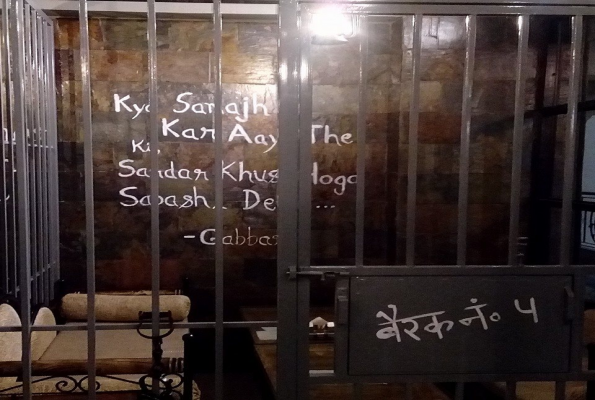 Kya Samajh
Kar Aaye The
Ki,
Sardar Khus Hoga
Sabash..
- Gabbar
बैरक नं० ५